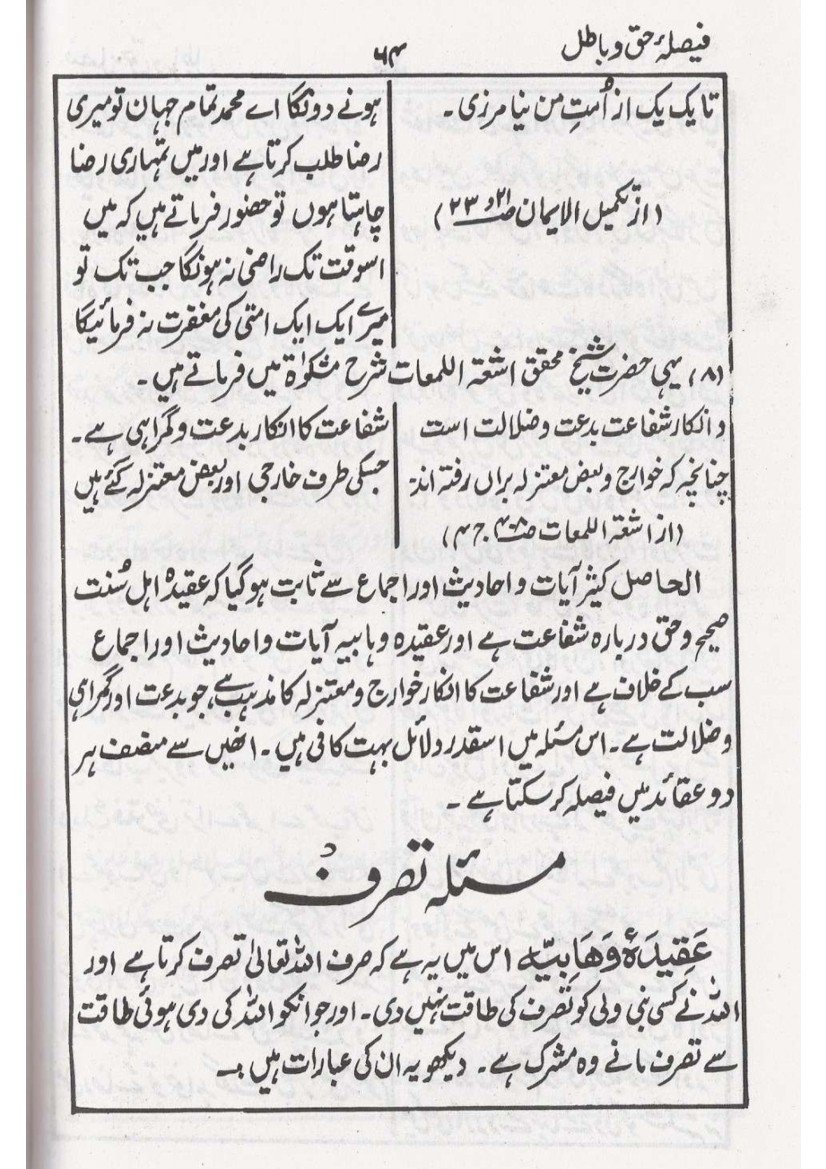 فیصلۂ حق و باطل
۶۴
تا یک یک از اُمتِ من نیامرزی۔
(از تکمیل الایمان ص۲۱و۲۳)
ہونے دونگا اے محمد تمام جہان تو میری
رضا طلب کرتا ہے اور میں تمہاری رضا
چاہتا ہوں تو حضور فرماتے ہیں کہ میں
اسوقت تک راضی نہ ہونگا جب تک تو
میرے ایک ایک امتی کی مغفرت نہ فرمائیگا
(۸) یہی حضرت شیخ محقق اشعۃ اللمعات شرح مشکوٰۃ میں فرماتے ہیں۔
و انکار شفاعت بدعت و ضلالت است
چنانچہ کہ خوارج و بعض معتزلہ براں رفتہ اند
(از اشعۃ اللمعات ص۴۰۸ ج۴)
شفاعت کا انکار بدعت و گمراہی ہے۔
جسکی طرف خارجی اور بعض معتزلہ گئے ہیں
الحاصل کثیر آیات و احادیث اور اجماع سے ثابت ہو گیا کہ عقیدۂ اہل سُنت
صحیح و حق دربارہ شفاعت ہے اور عقیدہ وہابیہ آیات و احادیث اور اجماع
سب کے خلاف ہے اور شفاعت کا انکار خوارج و معتزلہ کا مذہب ہے، جو بدعت اور گمراہی
و ضلالت ہے۔ اس مسئلہ میں اسقدر دلائل بہت کافی ہیں۔ انھیں سے منصف ہر
دو عقائد میں فیصلہ کر سکتا ہے۔
مسئلہ تصرف
عَقِیدَۂ وَھَابِیَّہ اس میں یہ ہے کہ صرف اللہ تعالیٰ تصرف کرتا ہے اور
اللہ نے کسی نبی ولی کو تصرف کی طاقت نہیں دی۔ اور جو انکو اللہ کی دی ہوئی طاقت
سے تصرف مانے وہ مشرک ہے۔ دیکھو یہ ان کی عبارات ہیں :۔